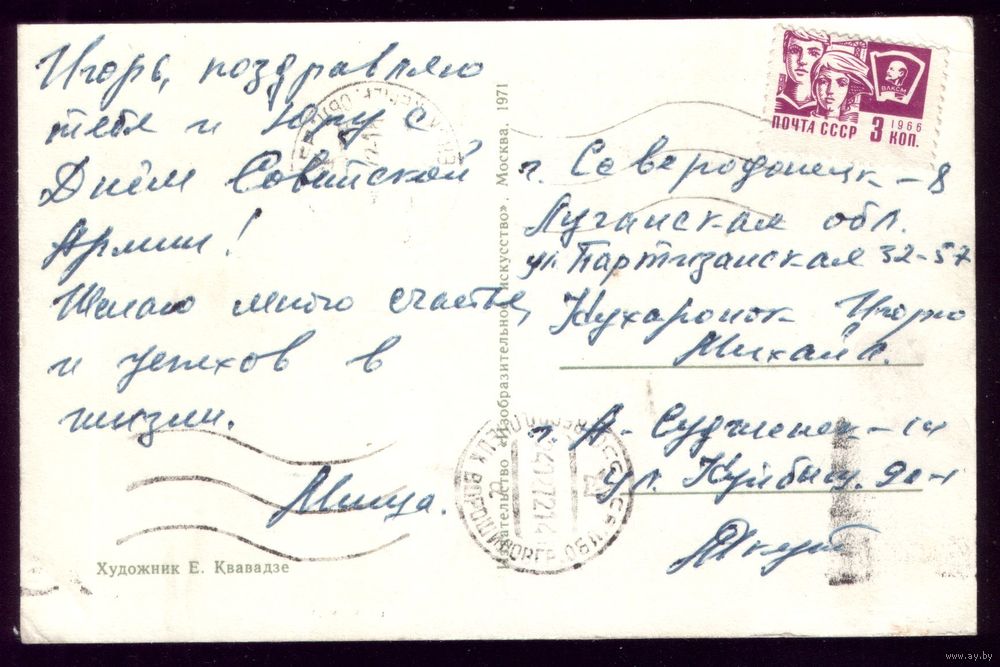 Игорь, поздравляю
тебя и Юру с
Днём Советской
Армии!
Желаю много счастья,
и успехов в
жизни.
Миша.
Художник Е. Квавадзе
Издательство «Изобразительное искусство». Москва. 1971
ВЛКСМ
1966
ПОЧТА СССР 3 КОП.
г. Северодонецк-8
Луганская обл.
ул. Партизанская 32-57
Кухаронок Игорю
Михайл.
г. А-Судженск-14
ул. Куйбыш.
www.ay.by